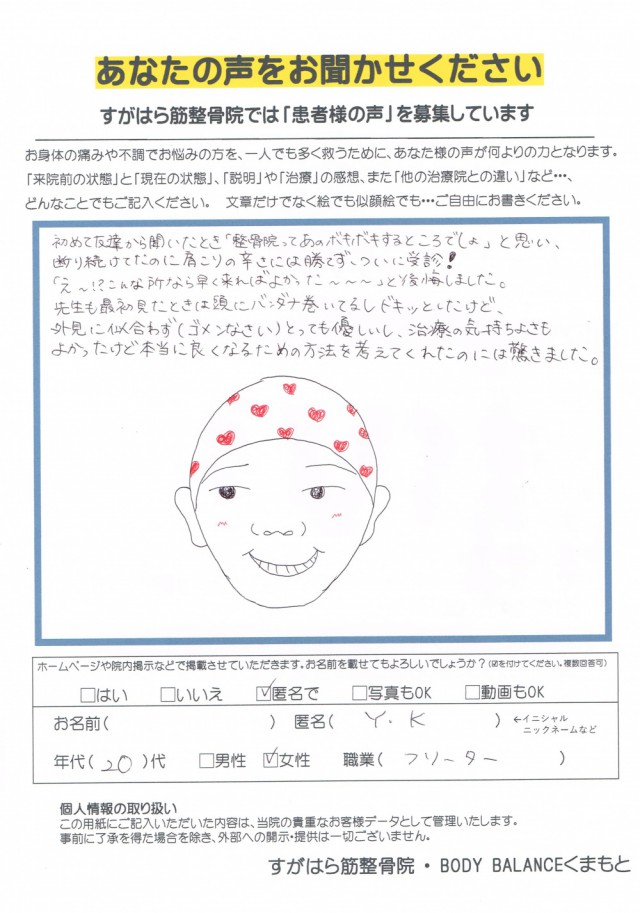 あなたの声をお聞かせください
すがはら筋整骨院では「患者様の声」を募集しています
お身体の痛みや不調でお悩みの方を、一人でも多く救うために、あなた様の声が何よりの力となります。
「来院前の状態」と「現在の状態」、「説明」や「治療」の感想、また「他の治療院との違い」など…、
どんなことでもご記入ください。 文章だけでなく絵でも似顔絵でも…ご自由にお書きください。
初めて友達から聞いたとき「整骨院ってあのボキボキするところでしょ」と思い、
断り続けてたのに肩こりの辛さには勝てず、ついに受診!
「え〜!?こんな所なら早く来ればよかった〜〜〜」と後悔しました。
先生も最初見たときは頭にバンダナ巻いてるしドキッとしたけど、
外見に似合わず(ゴメンなさい)とっても優しいし、治療の気持ちよさも
よかったけど本当に良くなるための方法を考えてくれたのには驚きました。
ホームページや院内掲示などで掲載させていただきます。お名前を載せてもよろしいでしょうか?(☑を付けてください。複数回答可)
□はい □いいえ ☑匿名で □写真もOK □動画もOK
お名前( ) 匿名( Y・K ) ←イニシャル
ニックネームなど
年代( 20 )代 □男性 ☑女性 職業( フリーター )
個人情報の取り扱い
この用紙にご記入いただいた内容は、当院の貴重なお客様データとして管理いたします。
事前に了承を得た場合を除き、外部への開示・提供は一切ございません。
すがはら筋整骨院・BODY BALANCEくまもと